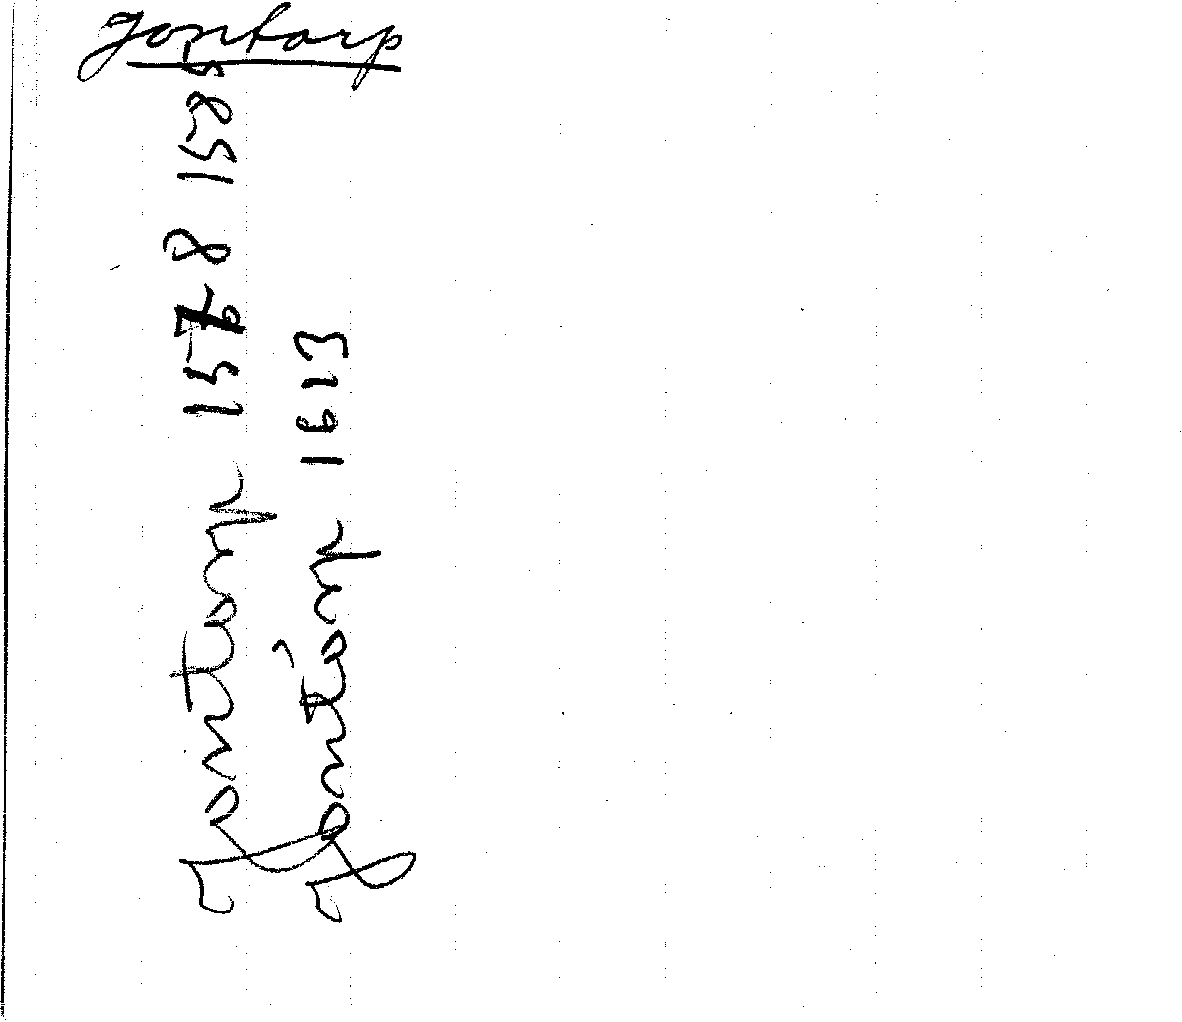 Jontorp
Jontorp 1578 1585
Jontorp 1613